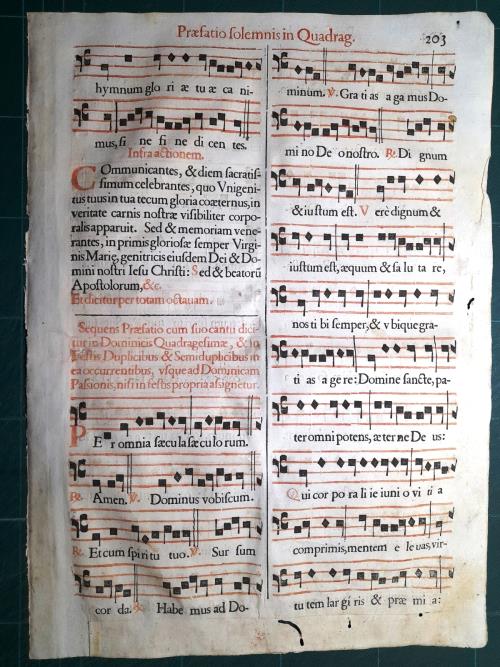 Præfatio solemnis in Quadrag.
203
hymnum glo ri æ tu æ ca ni-
mus, si ne fi ne di cen tes.
Infra actionem.
COmmunicantes, & diem sacratis-
simum celebrantes, quo Vnigeni-
tus tuus in tua tecum gloria coæternus, in
veritate carnis nostræ visibiliter corpo-
ralis apparuit. Sed & memoriam vene-
rantes, in primis gloriosæ semper Virgi-
nis Marię, genitricis eiusdem Dei & Do-
mini nostri Iesu Christi: Sed & beatorū
Apostolorum, &c.
Et dicitur per totam octauam.
Sequens Præfatio cum suo cantu dici-
tur in Dominicis Quadragesimæ, & in
Festis Duplicibus & Semiduplicibus in
ea occurrentibus, vsque ad Dominicam
Passionis, nisi in festis propria assignetur.
PE r omnia sæcu la sæcu lo rum.
℟. Amen. ℣. Dominus vobiscum.
℟. Et cum spi ritu tuo. ℣. Sur sum
cor da. ℟. Habe mus ad Do-
minum. ℣. Gra ti as a ga mus Do-
mi no De o nostro. ℟. Di gnum
& iu stum est. V erè dignum &
iustum est, æquum & sa lu ta re,
nos ti bi semper, & v bique gra-
ti as a ge re: Domine sancte, pa-
ter omni potens, æ ter ne De us:
Qui cor po ra li ie iuni o vi ti a
comprimis, mentem e le uas, vir-
tu tem lar gi ris & præ mi a: